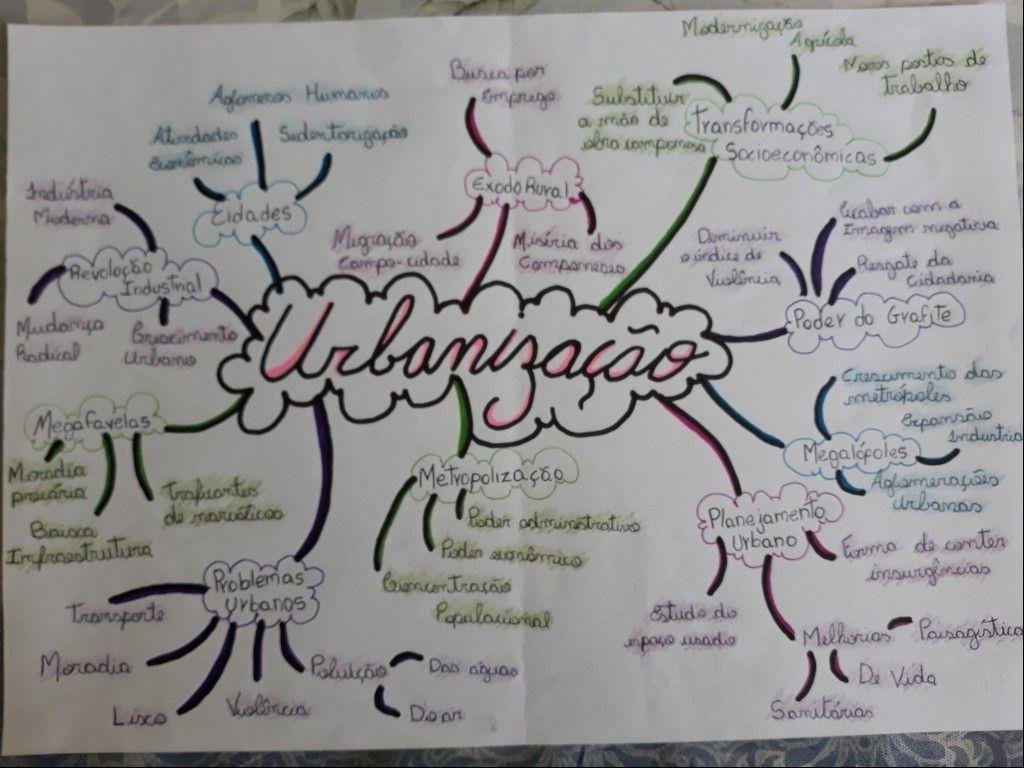 Urbanização
Cidades
Atividades
Econômicas
Aglomeros Humanos
Sedentarização
Exodo Rural
Busca por
Emprego
Migração
Campo-cidade
Miséria dos
Camponeses
Transformações
Socioeconômicas
Substituir
a mão de
obra camponesa
Modernização
Agrícola
Novos postos de
Trabalho
Poder do Grafite
Diminuir
o índice de
Violência
Acabar com a
Imagem negativa
Resgate da
Cidadania
Megalópoles
Crescimento das
metrópoles
Expansão
Industria
Aglomerações
Urbanas
Planejamento
Urbano
Forma de conter
insurgências
Estudo do
espaço usado
Melhorias
Paisagística
De Vida
Sanitárias
Metropolização
Poder administrativo
Poder econômico
Concentração
Populacional
Problemas
Urbanos
Transporte
Moradia
Lixo
Violência
Poluição
Das águas
Do ar
Megafavelas
Moradia
precária
Baixa
Infraestrutura
Traficantes
de narcóticos
Revolução
Industrial
Indústria
Moderna
Mudança
Radical
Crescimento
Urbano